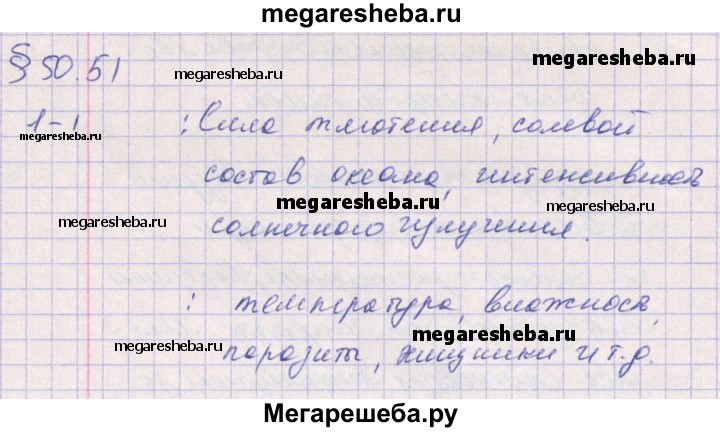 megaresheba.ru
§ 50.51 megaresheba.ru megaresheba.ru
1-1 : Сила тяготения, солевой
megaresheba.ru
состав океана, интенсивность
megaresheba.ru megaresheba.ru megaresheba.ru
солнечного излучения.
: температура, влажность,
megaresheba.ru megaresheba.ru
паразиты, хищники и т.д.
Мегарешеба.ру